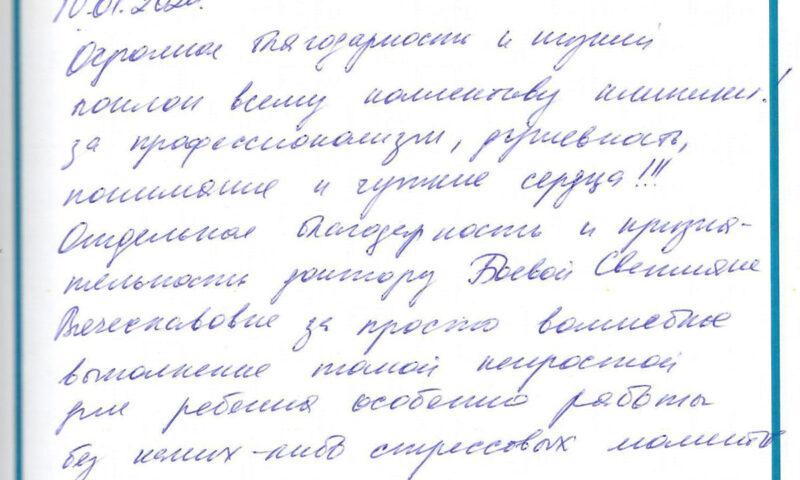 10.01.202
Огромная благодарность и низкий
поклон всему коллективу клиники!
за профессионализм, душевность,
понимание и чуткие сердца!!!
Отдельная благодарность и призна-
тельность доктору Боевой Светлане
Вячеславовне за просто волшебное
выполнение такой непростой
для ребенка особенно работы
без каких-либо стрессовых моментов